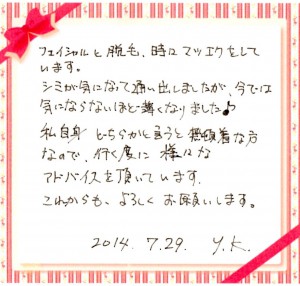 フェイシャルと脱毛、時にマツエクをして
います。
シミが気になって通い出しましたが、今では
気にならないほど薄くなりました♪
私自身 どちらかと言うと無頓着な方
なので、行く度に 様々な
アドバイスを頂いています。
これからも、よろしく お願いします。
2014. 7.29. Y.K.